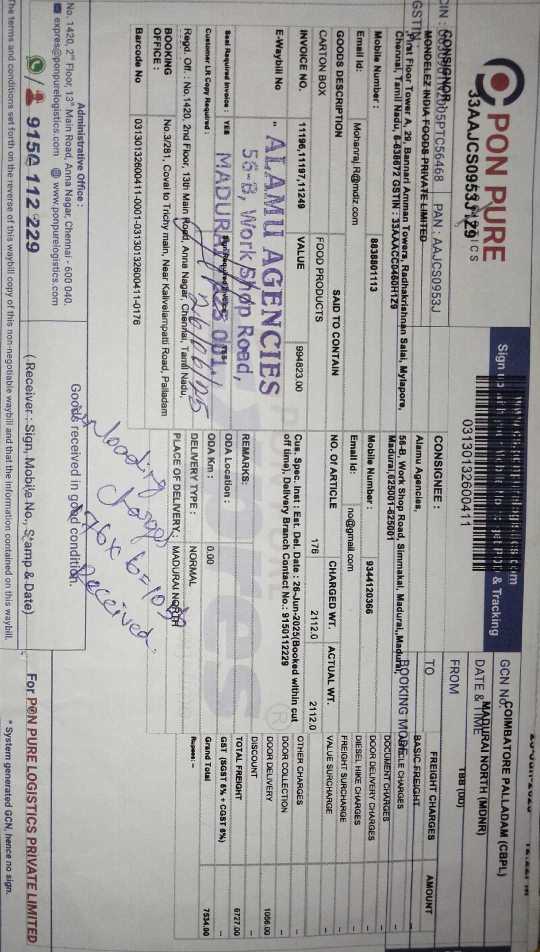 PON PURE
LOGISTICS
33AAJCS0953J1Z9
PAN : AAJCS0953J
GSTIN
Sign up with
& Tracking
03130132600411
GCN NO.
COIMBATORE PALLADAM (CBPL)
DATE & TIME
MADURAI NORTH (MDNR)
FROM
TBB (DD)
TO
BOOKING MODE
CONSIGNOR
MONDELEZ INDIA FOODS PRIVATE LIMITED
First Floor Tower A, 29, Bannari Amman Towers, Radhakrishnan Salai, Mylapore,
Chennai, Tamil Nadu,
GSTIN : 33AAACC0460H1Z9
Mobile Number :
8838801113
Email Id:
Mohanraj R@mdlz.com
CONSIGNEE :
Alamu Agencies,
56-B, Work Shop Road, Simmakal, Madurai, Madurai,
Madurai,625001-625001
Mobile Number :
9344120366
Email Id:
no@gmail.com
GOODS DESCRIPTION
SAID TO CONTAIN
NO. Of ARTICLE
CHARGED WT.
ACTUAL WT.
CARTON BOX
FOOD PRODUCTS
176
2112.0
2112.0
INVOICE NO.
11196,11197,11249
VALUE
994823.00
Cus. Spec. Inst : Est. Del. Date : 26-Jun-2025(Booked within cut
off time), Delivery Branch Contact No.: 9150112229
E-Waybill No
REMARKS:
ALAMU AGENCIES
56-B, Work Shop Road,
MADURAI-625 001.
26/06/25
Seal Required Invoice :
YES
ODA Location :
Customer LR Copy Required :
ODA Km :
0.00
Regd. Off. : No.1420, 2nd Floor, 13th Main Road, Anna Nagar, Chennai, Tamil Nadu,
DELIVERY TYPE :
NORMAL
BOOKING
OFFICE :
No.3/281, Coval to Trichy main, Near Kalivelampatti Road, Palladam
PLACE OF DELIVERY :
MADURAI NORTH
Barcode No
03130132600411-0001-03130132600411-0176
FREIGHT CHARGES
AMOUNT
BASIC FREIGHT
DOCUMENT CHARGES
DOOR DELIVERY CHARGES
DIESEL HIKE CHARGES
FREIGHT SURCHARGE
VALUE SURCHARGE
OTHER CHARGES
DOOR COLLECTION
DOOR DELIVERY
1056.00
DISCOUNT
TOTAL FREIGHT
6727.00
GST (SGST 6% + CGST 6%)
Grand Total
7534.00
Rupees: --
Goods received in good condition.
unloading
charges
received.
Administrative Office :
No. 1420, 2nd Floor, 13th Main Road, Anna Nagar, Chennai - 600 040.
expres@ponpurelogistics.com
www.ponpurelogistics.com
9150 112 229
( Receiver : Sign, Mobile No., Stamp & Date)
For PON PURE LOGISTICS PRIVATE LIMITED
The terms and conditions set forth on the reverse of this waybill copy of this non-negotiable waybill and that the information contained on this waybill.
* System generated GCN, hence no sign.